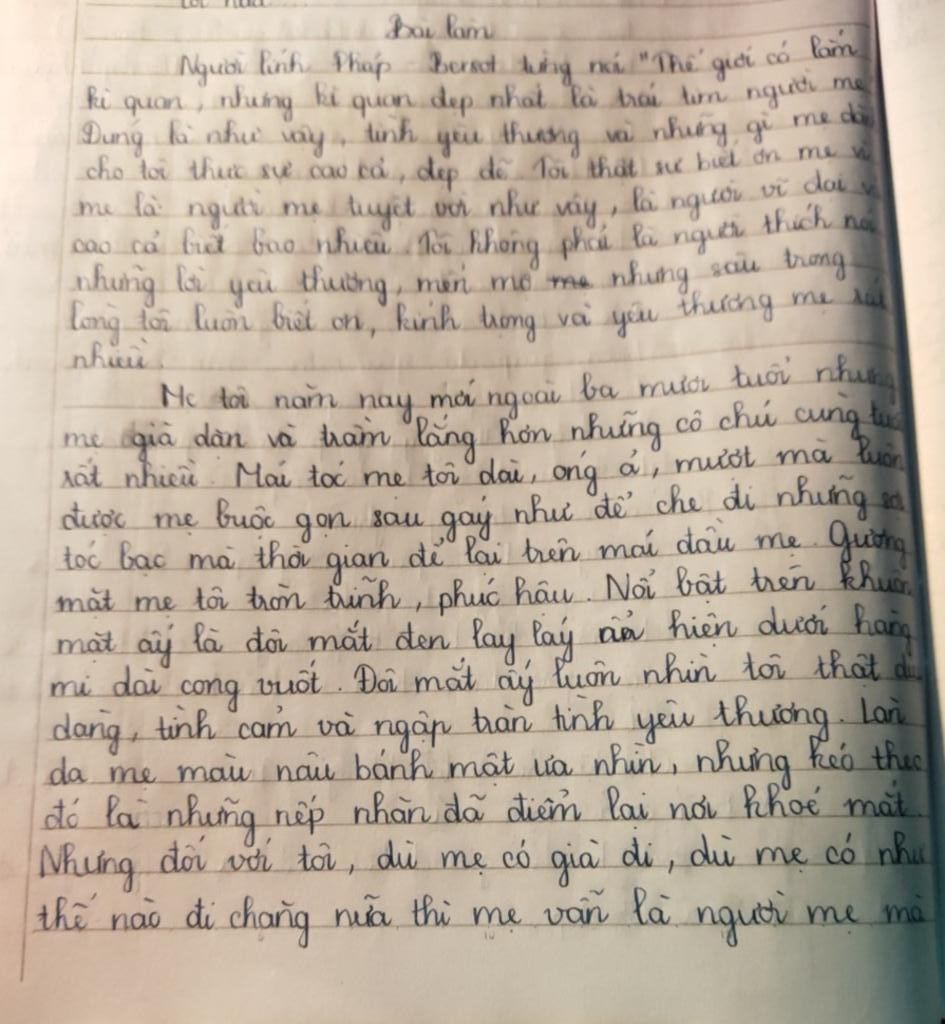 Bài làm
Người lính Pháp - Bersot từng nói "Thế giới có lắm
kì quan, nhưng kì quan đẹp nhất là trái tim người mẹ
Đúng là như vậy, tình yêu thương và những gì mẹ
cho tôi thực sự cao cả, đẹp đẽ. Tôi thật sự biết ơn mẹ vì
mẹ là người mẹ tuyệt vời như vậy, là người vĩ đại
cao cả biết bao nhiêu. Tôi không phải là người thích nói
những lời yêu thương, mến mộ nhưng sâu trong
lòng tôi luôn biết ơn, kính trọng và yêu thương mẹ rất
nhiều.
Mẹ tôi năm nay mới ngoài ba mươi tuổi nhưng
mẹ già dặn và trầm lắng hơn những cô chú cùng
rất nhiều. Mái tóc mẹ tôi dài, óng ả, mượt mà luôn
được mẹ buộc gọn sau gáy như để che đi những
tóc bạc mà thời gian để lại trên mái đầu mẹ. Gương
mặt mẹ tôi tròn trĩnh, phúc hậu. Nổi bật trên khuôn
mặt ấy là đôi mắt đen lay láy hiện dưới hàng
mi dài cong vuốt. Đôi mắt ấy luôn nhìn tôi thật
dàng, tình cảm và ngập tràn tình yêu thương. Làn
da mẹ màu nâu bánh mật ưa nhìn, nhưng kéo theo
đó là những nếp nhăn đã điểm lại nơi khoé mắt.
Nhưng đối với tôi, dù mẹ có già đi, dù mẹ có như
thế nào đi chăng nữa thì mẹ vẫn là người mẹ mà